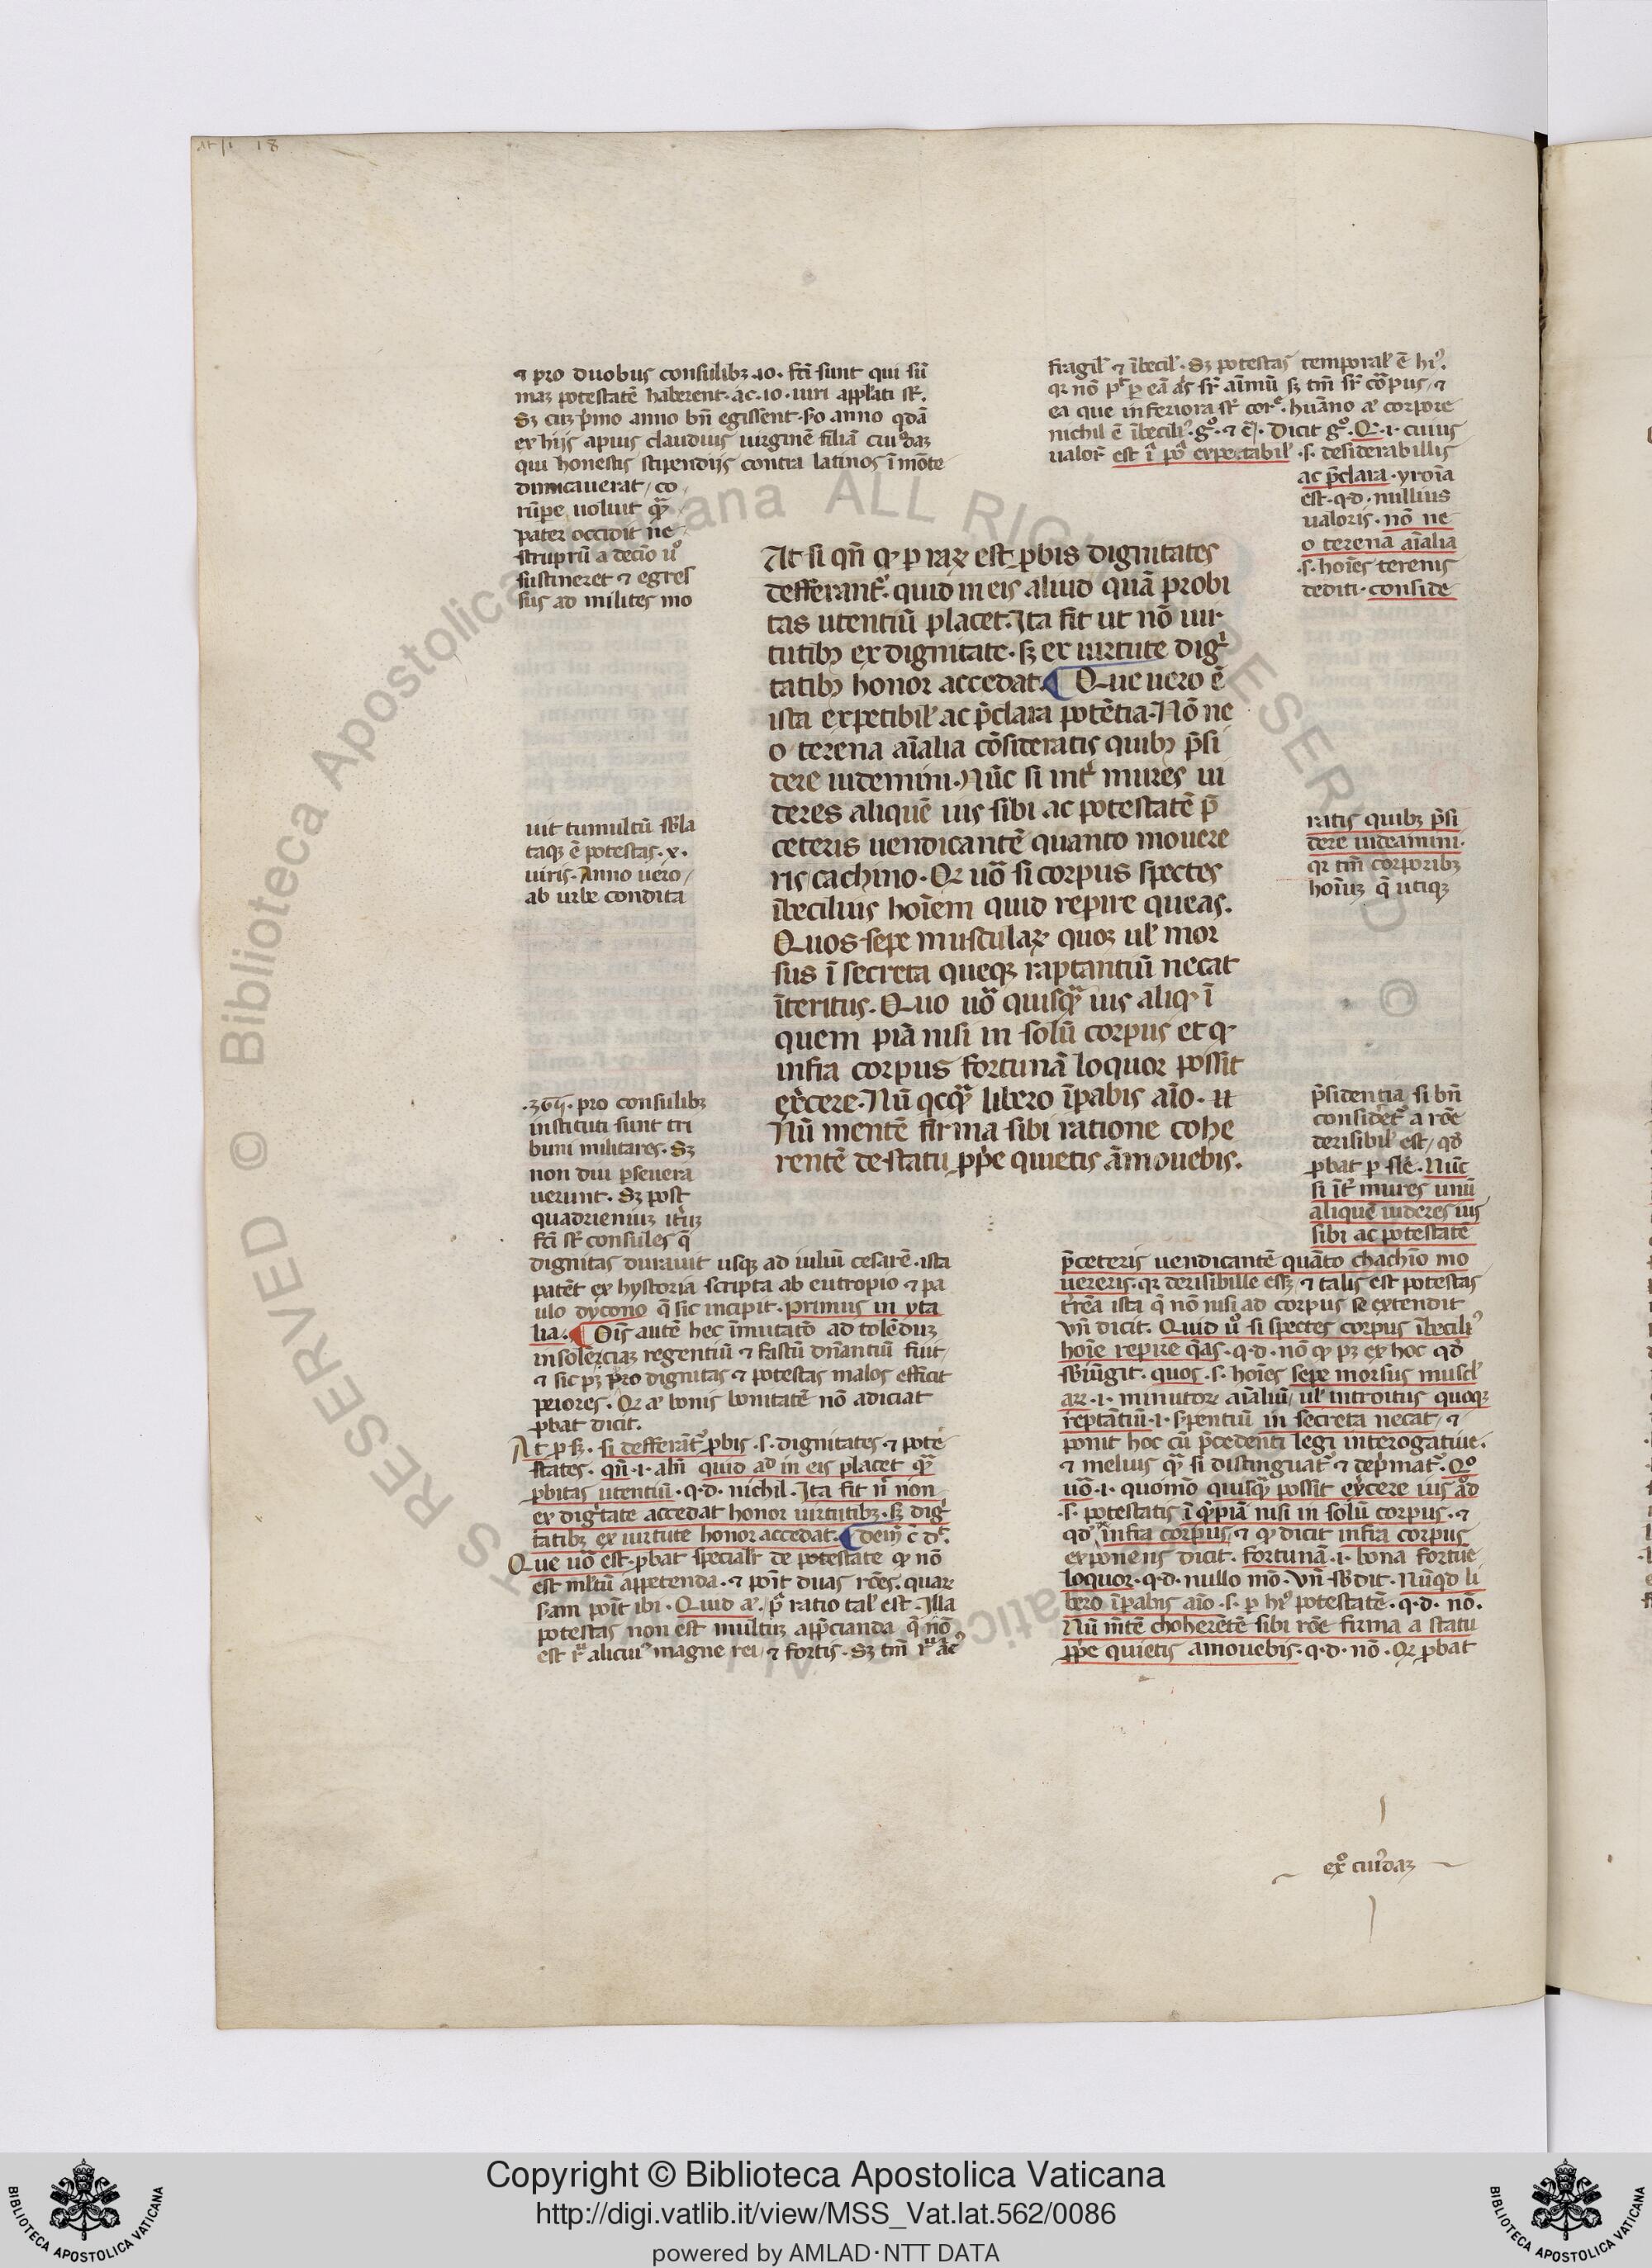 ⁊ pro duobus consulibꝫ .10. fc̄i sunt qui sū
maꝫ potestatē haberent. ac .10. uiri appl̄ati sr̄.
Sꝫ cuꝫ pͥmo anno bn̄ egissent. s̄o anno qdā
ex hijs apius claudius uirginē filiā cuiꝰdaꝫ
qui honestis stipendijs contra latinos ī mōte
dimicauerat, co
rūpe uoluit qͣꝫ
pater occidit ne
struprū a decio uͦ
sustineret ⁊ egres
sus ad milites mo
uit tumultū sb̄la
taqꝫ ē potestas .x.
uiris. Anno uero
ab urbe condita
pro consulibꝫ
instituti sunt tri
buni militares. Sꝫ
non diu ꝑseuera
uerunt. Sꝫ post
quadrieniuꝫ itꝰuꝫ
fc̄i sr̄ consules q̄
dignitas durauit usqꝫ ad iuliū cesarē. ista
patēt ex hystoria scripta ab eutropio ⁊ pa
ulo dycono q̄ sic incipit. primus in yta
lia. ¶ Oīs autē hec īmutatō ad tolēduꝫ
insolenciaꝫ regentiū ⁊ fastū dn̄antiū fuit
⁊ sic pꝫ pͥro dignitas ⁊ potestas malos efficit
peiores. Qꝛ āt bonis bonitatē nō adiciat
ꝓbat dicit.
At ꝑ sꝫ. si defferāt̉ ꝓbis .s. dignitates ⁊ pote
states. qn̄ .i. alīn quid ad in eis placet qͣꝫ
ꝓbitas utentiū .q.d. nichil. Ita fit n̄ non
ex digͥtate accedat honor uirtutibꝫ. sꝫ digͥ
tatibꝫ ex uirtute honor accedat. ¶ dein̄ c̄ dͬ.
Que uō est. ꝓbat specialr̄ de potestate ꝙ nō
est ml̄tū appetenda. ⁊ poīt duas rōes. quaꝝ
s̄am poīt ibi. Quid āt. pͣ ratio tal̄ est. Illa
potestas non est multuꝫ app̄cianda q̄ nō
est rͬ alicuiꝰ magne rei, ⁊ fortis. Sꝫ tm̄ rͬ
At si qn̄ ꝙ ꝑ raꝝ est ꝓbis dignitates
defferant̉. quid in eis aliud quā probi
tas utentiū placet. Ita fit ut nō uir
tutibꝫ ex dignitate. sꝫ ex uirtute digͥ
tatibꝫ honor accedat. ¶ Que uero ē
ista expetibil̄ ac p̄clara potētia. Nō ne
o terena aīalia cōsideratis quibꝫ p̄si
dere uidemini. Nūc si int̉ mures ui
deres aliquē ius sibi ac potestatē p̄
ceteris uendicantē quanto mouere
ris cachino. Qꝛ uō si corpus spectes
ībecilius hoīem quid reꝑire queas.
Quos sepe musculaꝝ quoꝫ ul̄ mor
sus ī secreta queqꝫ raptantiū necat
īteritus. Quo uō quisqͣꝫ ius aliqꝙ ī
quem piā nisi in solū corpus et ꝙ
infra corpus fortunā loquor possit
ex̉cere. Nū qcqͣꝫ libero īpabis aīo. u
Nū mentē firma sibi ratione cohe
rentē de statu ꝓpͥe quietis āmouebis.
fragil̄ ⁊ ībecil̄. Sꝫ potestas temporal̄ ē hiꝰ.
ea que inferiora sr̄ corꝑe. humano āt corpore
nichil ē ībeciliꝰ. gͦ. ⁊ c̄. Dicit gͦ. Qꝛ .i. cuius
ualoris est ī poͣ expectabil̄ .s. desiderabillis
ac p̄clara. yronia
est .q.d. nullius
ualoris. nō ne
o terena aīalia
.s. hoīes terenis
dediti. conside
ratis quibꝫ p̄si
dere uideamini.
qꝛ tm̄ corporibꝫ
hoīuꝫ q̄ utiqꝫ
p̄sidentia si bn̄
consideͬt̉ a rōe
derisibil̄ est, qꝰ
ꝓbat ꝑ sīle. Nūc
si īt̉ mures unū
aliquē uideres ius
sibi ac potestatē
p̄ceteris uendicantē quāto chachīo mo
uereris. qꝛ derisibille esꝫ ⁊ talis est potestas
tͬrēa ista q̄ nō nisi ad corpus se extendit
vn̄ dicit. Quid uͦ si spectes corpus ībeciliꝰ
hoīe reꝑire q̄as .q.d. nō ꝙ pꝫ ex hoc qꝰ
sb̄iūgit. quos .s. hoīes sepe morsus muscl̄
aꝝ .i. minutoꝝ aīaliū, ul̄ introitus quoqꝫ
reptātiū .i. sꝑentiū in secreta necat, ⁊
ponit hoc cū p̄cedenti legi interogatiue.
⁊ melius qͣꝫ si distinguat̉ ⁊ dep̄mat̉. Qͦ
uō .i. quomō quisqͣꝫ possit ex̉cere ius
.s. potestatis ī qͥpiā nisi in solū corpus. ⁊
qd̄ infra corpus, ⁊ ꝙ dicit infra corpus
exponens dicit. fortunā .i. bona fortūe
loquor .q.d. nullo mō. vn̄ sb̄dit. Nūqd li
bero īpabis aīo .s. ꝑ hͬ potestatē .q.d. nō.
Nū mtē choherētē sibi rōe firma a statu
ꝓpͥe quietis amouebis .q.d. nō. Qꝛ ꝓbat
exͦ cuiꝰdaꝫ
Copyright © Biblioteca Apostolica Vaticana
http://digi.vatlib.it/view/MSS_Vat.lat.562/0086
powered by AMLAD·NTT DATA
BIBLIOTECA APOSTOLICA VATICANA
BIBLIOTECA APOSTOLICA VATICANA